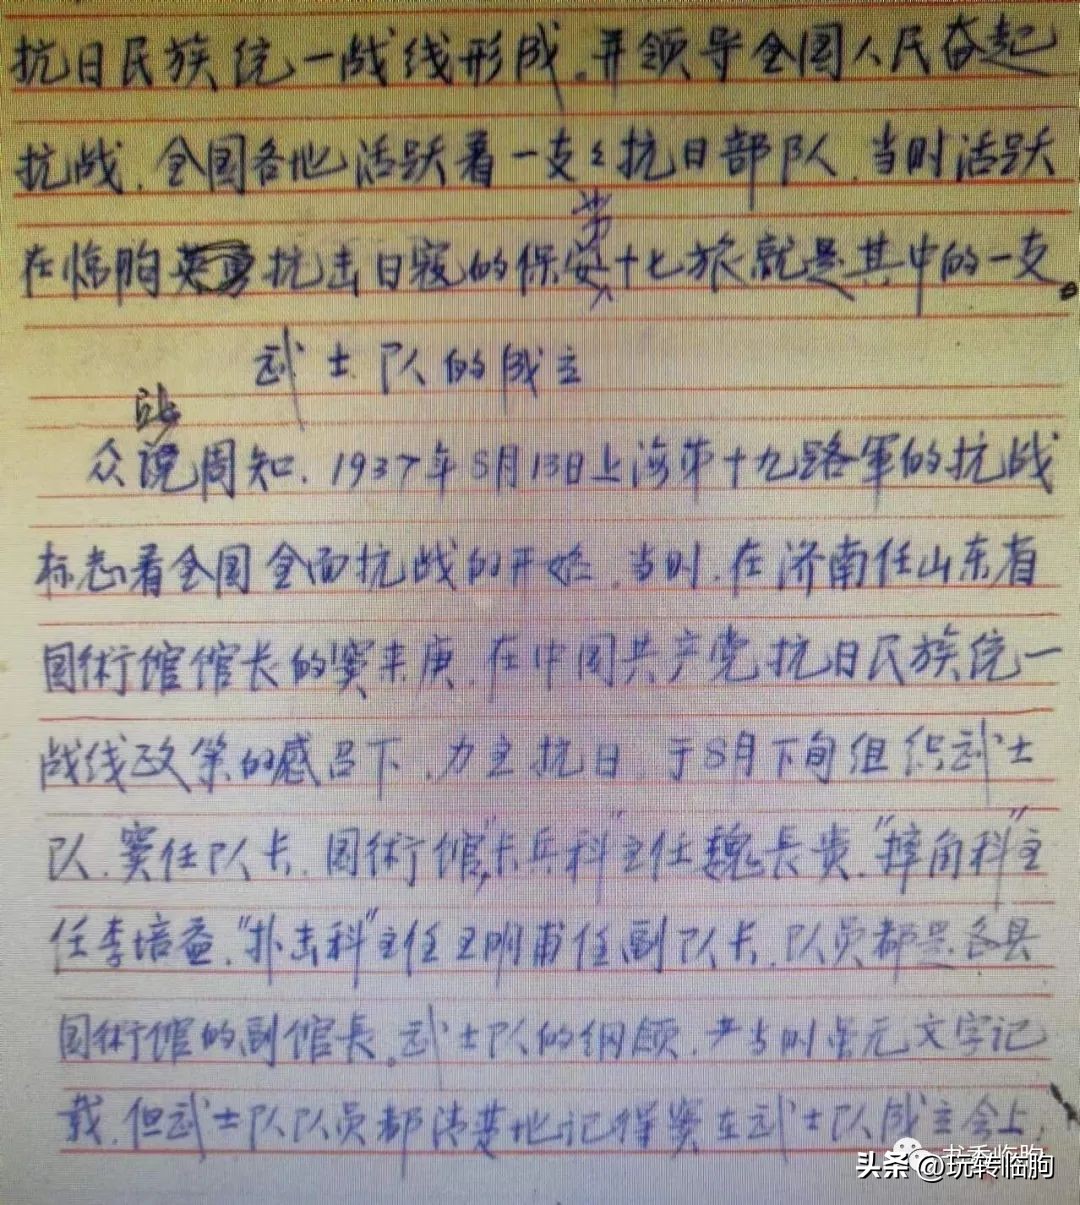 抗日民族统一战线形成。并领导全国人民奋起
抗战。全国各地活跃着一支支抗日部队，当时活跃
在临朐抗击日寇的保安第十七旅就是其中的一支。
武士队的成立
众所周知，1937年8月13日上海第十九路军的抗战
标志着全国全面抗战的开始。当时，在济南任山东省
国術馆馆长的窦来庚，在中国共产党抗日民族统一
战线政策的感召下，力主抗日，于8月下旬组织武士
队。窦任队长，国術馆"长兵科"主任魏長贵，"摔角科"主
任李培益，"扑击科"主任王明甫任副队长，队员都是各县
国術馆的副馆長。武士队的纲领，当时虽无文字记
载，但武士队队员都清楚地记得窦在武士队成立会上，
书香临朐
头条 @玩转临朐